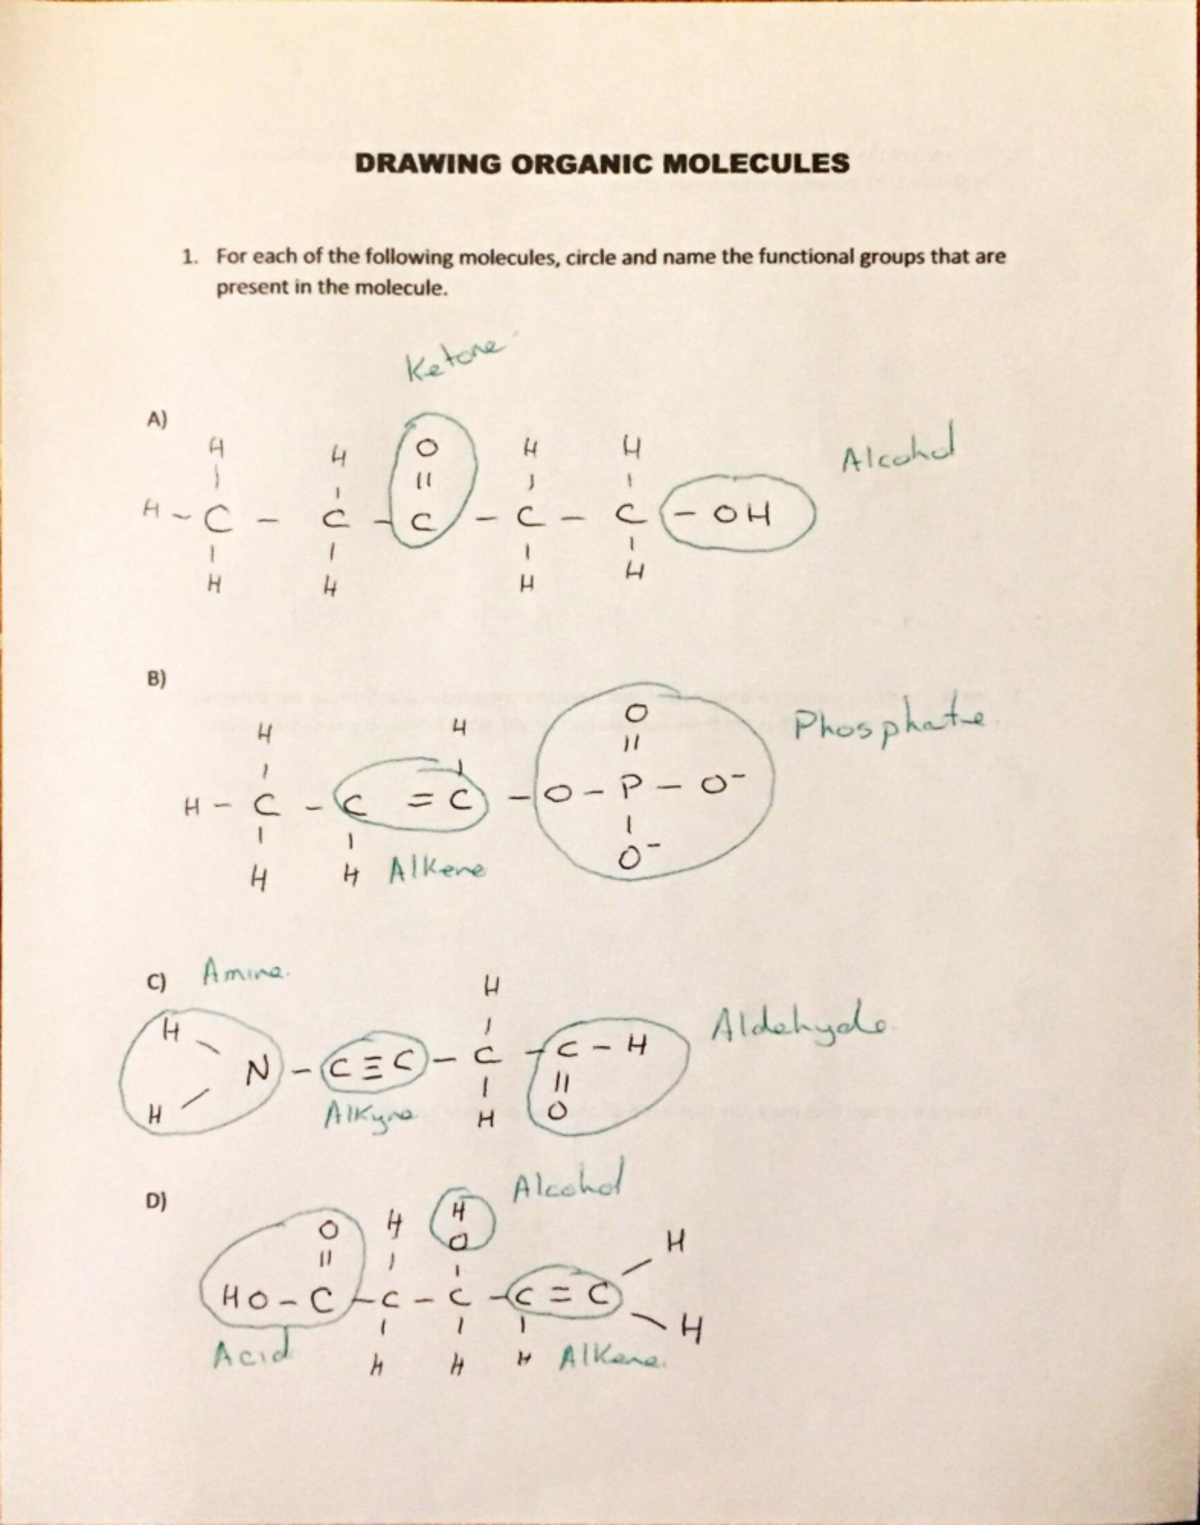 DRAWING ORGANIC MOLECULES
1. For each of the following molecules, circle and name the functional groups that are
present in the molecule.
Ketone
A)
H H O H H Alcohol
| | || | |
H - C - C - C - C - C - OH
| | | |
H H H H
B)
H H O Phosphate
| | ||
H - C - C = C - O - P - O⁻
| | |
H H Alkene O⁻
C) Amine
H H Aldehyde
\ |
N - C ≡ C - C - C - H
/ | ||
H Alkyne H O
D) Alcohol
O H H H
|| | O
HO - C - C - C - C = C
| | | H
Acid H H H Alkene